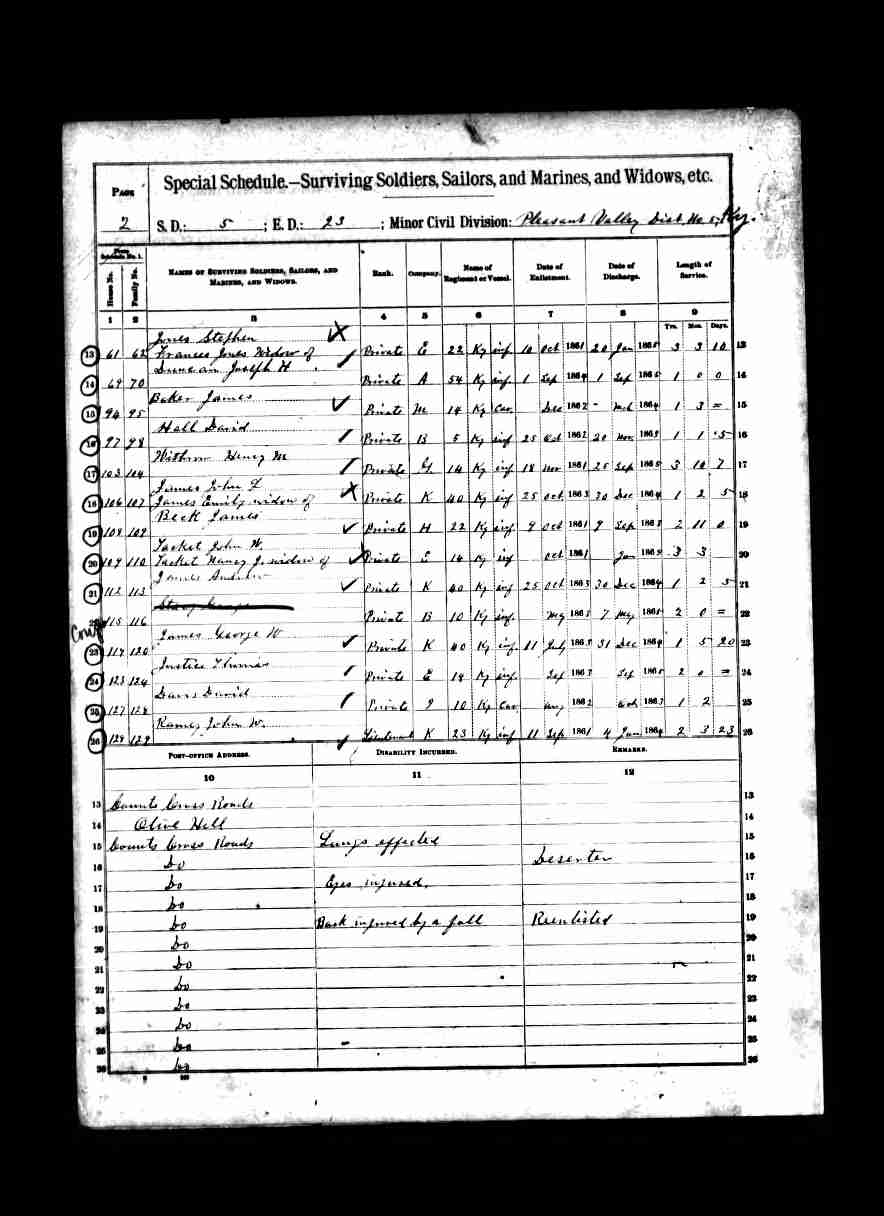 PAGE
2
Special Schedule.—Surviving Soldiers, Sailors, and Marines, and Widows, etc.
S. D.: 5 ; E. D.: 23 ; Minor Civil Division: Pleasant Valley Dist. No 5, Ky.
From Schedule No. 1.
House No. Family No. NAMES OF SURVIVING SOLDIERS, SAILORS, AND MARINES, AND WIDOWS. Rank. Company. Name of Regiment or Vessel. Date of Enlistment. Date of Discharge. Length of Service.
1 2 3 4 5 6 7 8 9
Yrs. Mos. Days.
Jones Stephen
13 61 62 Frances Jones Widow of Private E 22 Ky inf 10 Oct 1861 20 Jan 1865 3 3 10 13
Duncan Joseph H
14 69 70 Private A 54 Ky inf. 1 Sep 1864 1 Sep 1865 1 0 0 14
Baker James
15 94 95 Private M 14 Ky Cav Dec 1862 - Mch 1864 1 3 = 15
Hall David
16 97 98 Private B 5 Ky inf 25 Oct 1862 20 Nov 1863 1 1 5 16
Withrow Henry M
17 103 104 Private G 14 Ky inf 18 Nov 1861 25 Sep 1865 3 10 7 17
James John F
18 106 107 James Emily widow of Private K 40 Ky inf 25 Oct 1863 30 Dec 1864 1 2 5 18
Beck James
19 108 109 Private H 22 Ky inf. 9 Oct 1861 9 Sep 1863 2 11 0 19
Tacket John W.
20 109 110 Tacket Nancy J. widow of Private E 14 Ky inf Oct 1861 Jan 1865 3 3 20
James Andrew
21 112 113 Private K 40 Ky inf 25 Oct 1863 30 Dec 1864 1 2 5 21
Conf
22 115 116 Private B 10 Ky inf. My 1863 7 My 1865 2 0 = 22
James George W
23 119 120 Private K 40 Ky inf 11 July 1863 31 Dec 1864 1 5 20 23
Justice Thomas
24 123 124 Private E 19 Ky inf. Sep 1863 Sep 1865 2 0 = 24
Davis David
25 127 128 Private I 10 Ky Cav Aug 1862 Oct 1863 1 2 25
Ramey John W.
26 128 129 Lieutenant K 23 Ky inf 11 Sep. 1861 4 Jan 1864 2 3 23 26
POST-OFFICE ADDRESS. DISABILITY INCURRED. REMARKS.
10 11 12
13 Counts Cross Roads 13
14 Olive Hill 14
15 Counts Cross Roads Lungs effected 15
16 Do Deserter 16
17 Do Eyes injured. 17
18 Do 18
19 Do Back injured by a fall Reenlisted 19
20 Do 20
21 Do 21
22 Do 22
23 Do 23
24 Do 24
25 Do 25
26 Do 26